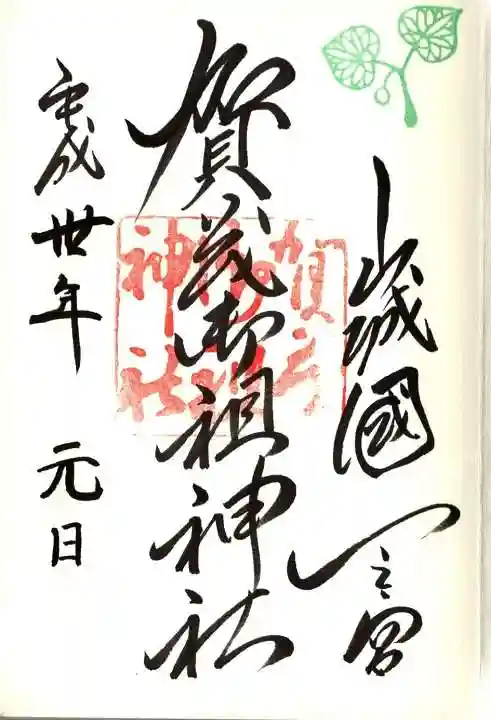 山城國一之宮
賀茂御祖神社
平成卅年 元日
賀茂
御祖
神社